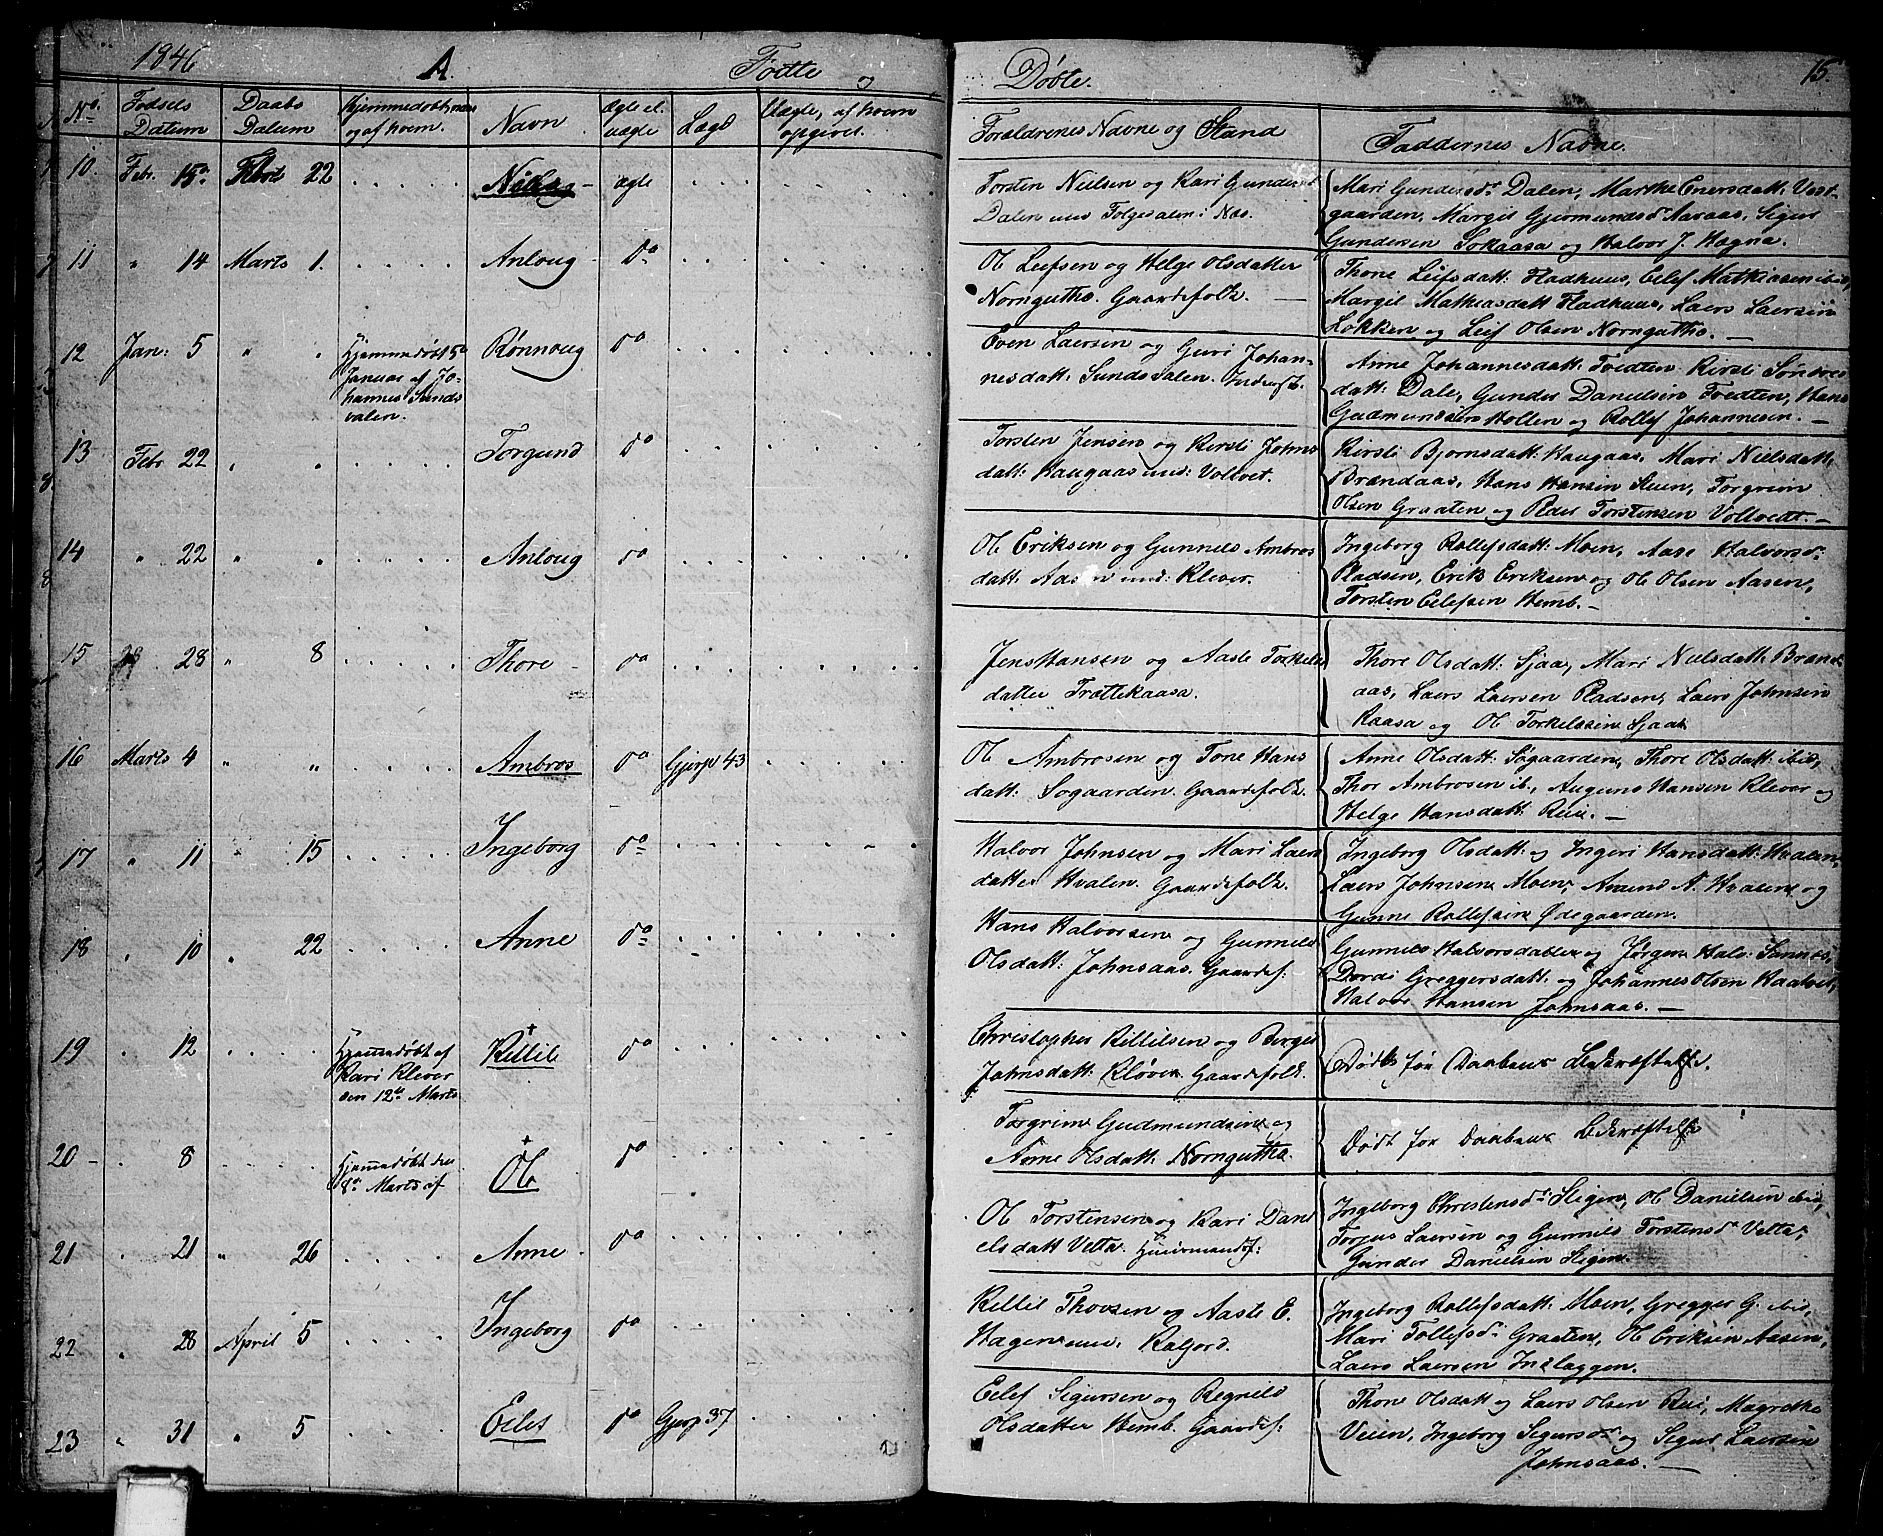 1846 A. Födte
Döbte. 15
No. Födsels Datum Daabs Datum Hjemmedöbt, naar og af hvem. Navn Ægte el. uægte Lægd Uægte, af hvem opgivet.
Forældrenes Navne og Stand Faddernes Navne.
10 Febr. 15de 22 ægte
Torsten Nielsen og Kari Gundersd.
Dalen
Mari Gundersdr Dalen, Marthe Enersdatt: Vest-
gaarden, Margit Gjermundsd. Aaraas, Sigur
Gundersen Sökaasa og Halvor J. Hagna.
11 " 14 Marts 1. Anloug do
Ol Leifsen og Helge Olsdatter
Nornguthe. Gaardefolk.
Thone Leifsdatt: Fladhuus, Eilef Mathiasen ibid,
Margit Mathiasdatt Fladhuus, Laers Laersen
Løkken og Leif Olsen Nornguthe.
12 Jan: 5 " " Hjemmedöbt 5te Rønnoug do
Januar af Jo-
hannes Sunds-
valen.
Even Laersen og Guri Johan-
nesdatt: Sundsvalen. Inderstf.
Anne Johannesdatt: Tvedten. Kirsti
datt: Dale, Gunder Danielsen Tvedten, Hans
Gudmundsen Holten og Rollef Johannesen. –
13 Febr 22 " " Torgund do
Torsten Jensen og Kirsti Johns
datt: Haugaas und: Vollvet.
Kirsti Bjornsdatt: Haugaas, Mari Nielsdatt.
Brændaas, Hans Hansen Steen, Torgrim
Olsen Graaten og Peder Torstensen Vollvedt. –
14 " 22 " " Anloug do
Ol Eriksen og Gunnild Ambros
datt: Aasen und: Klever.
Ingeborg Rollefsdatt: Moen, Aase Halvorsdr
Pladsen, Erik Eriksen og Ol Olsen Aasen,
Torsten Eilefsen Hemb. –
15 28 " 8 Thore do
Jens Hansen og Aaste Torkels
datter Trættekaasa.
Thore Olsdatt: Sjaa, Mari Nielsdatt: Brænd-
aas, Laers Laersen Pladsen, Laers Johnsen
Kaasa og Ol Torkelsen Sjaa
16 Marts 4 " " Ambros do Gjerp 43
Ol Ambrosen og Tone Hans
datt: Søgaarden. Gaardefolk.
Anne Olsdatt: Søgaarden, Thore Olsdatt: ibid,
Thor Ambrosen ib., Augund Hansen Klever og
Helge Hansdatt: Reie. –
17 " 11 " 15 Ingeborg do
Halvor Johnsen og Mari Laers
datter Hvalen. Gaardefolk.
Ingeborg Olsdatt: og Ingeri Hansdatt: Hvalen,
Laers Johnsen Moen, Amund A. Hvasen og
Gunne Rollefsen Ødegaarden.
18 " 10 " 22 Anne do
Hans Halvorsen og Gunnild
Olsdatt: Johnsaas. Gaardef:
Gunnild Halvorsdatter og Jørgen Halv:
Dordi Greggersdatt: og Johannes Olsen Haatvet,
Halvor Hansen Johnsaas. –
19 " 12 Hjemmedöbt af Kittil + do
Kari Klever
den 12te Marts
Christopher Kittilsen og Borgil
Johnsdatt: Kløver Gaardefolk.
Döde för Daabens Bekræftelse.
20 " 8 Hjemmedöbt den Ol + do
8de Marts af
Torgrim Gudmundsen og
Anne Olsdatt: Nornguthe.
Dödt for Daabens Bekræftelse
21 " 21 " 26 Anne do
Ol Torstensen og Kari Dani
elsdatt Velta. Huusmandsf:
Ingeborg Christensdr: Stigen, Ol Danielsen ibid,
Torjus Laersen og Gunnild Torstensdr Velta,
Gunder Danielsen Stigen.
22 " 28 April 5 Ingeborg do
Kittil Thovsen og Aaste E.
Hagen und. Kaljord.
Ingeborg Rollefsdatt: Moen, Gregger G. ibid,
Mari Tollefsdr Graaten, Ol Eriksen Aasen,
Laers Laersen Inlaggen.
23 " 31 " 5 Eilef do Gjerp 37
Eilef Sigursen og Regnild
Olsdatter Hemb. Gaardef:
Thone Olsdatt og Laers Olsen Reie, Magrethe
Veien, Ingeborg Sigursdr og Sigur Laersen
Johnsaas. –